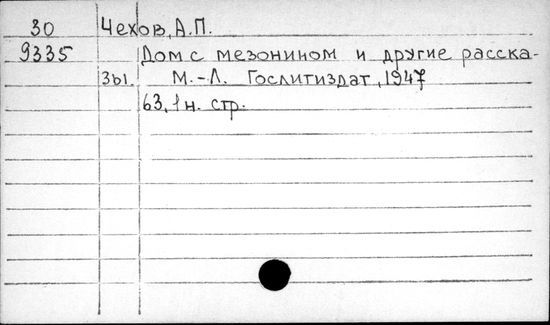 30 Чехов, А.П.
9335 Дом с мезонином и другие расска-
зы. М.-Л. Гослитиздат, 1947
63, 1 н. стр.